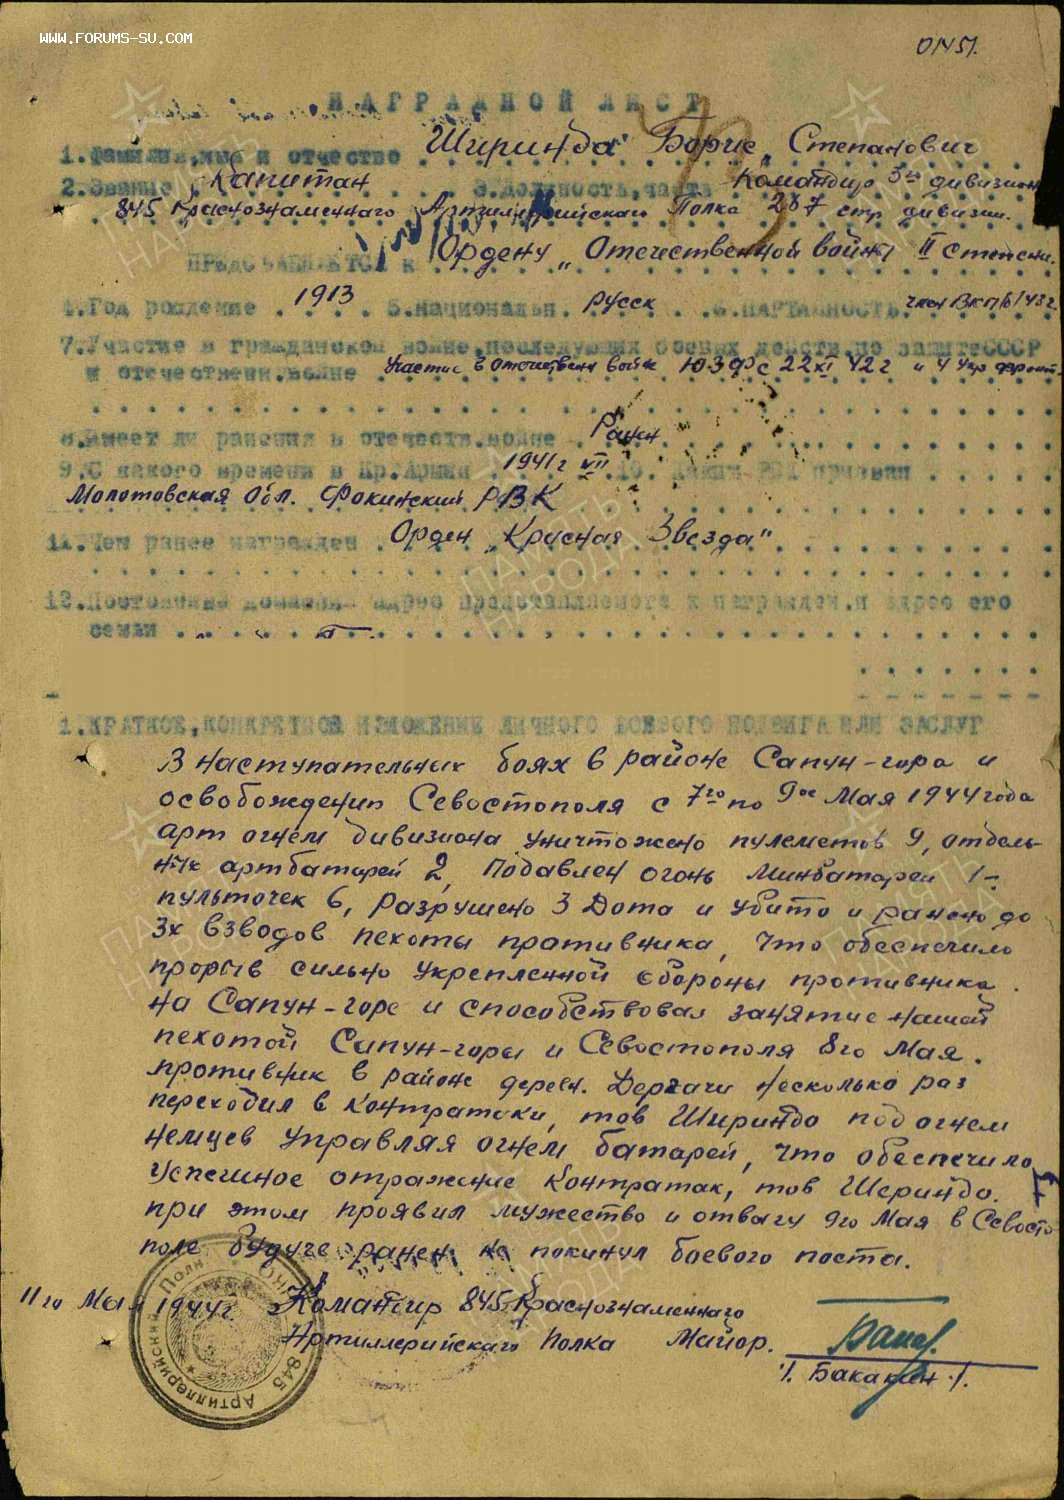 WWW.FORUMS-SU.COM
НАГРАДНОЙ ЛИСТ
1.Фамилия,имя и отчество Ширинда Борис Степанович
2.Звание Капитан 3.Должность,часть Командир 3го дивизион
845 Краснознаменного Артиллерийского Полка 287 стр дивизии.
ПРЕДСТАВЛЯЕТСЯ к Ордену „Отечественной войны II степени.
4.Год рождения 1913 5.национальн. русск 6.ПАРТИЙНОСТЬ. член ВКП/б/ 43г
7.Участие в гражданской войне,последующих боевых действ.по защите СССР
и отечествени.войне Участие в отечествен войне ЮЗФ с 22 XI 42г и 4 Укр фронт.
8.Имеет ли ранения в отечеств.войне Ранен
9.С какого времени в Кр.Армии 1941г VII 10. Каким РВК призван
Молотовская обл. Фокинский РВК
11.Чем ранее награжден Орден „Красная Звезда"
12.Постоянный домашний адрес представляемого к награжден.и адрес его
семьи
1.КРАТКОЕ,КОНКРЕТНОЕ ИЗЛОЖЕНИЕ ЛИЧНОГО БОЕВОГО ПОДВИГА ИЛИ ЗАСЛУГ
В наступательных боях в районе Сапун-гора и
освобождении Севостополя с 7го по 9ое Мая 1944 года
арт огнем дивизиона уничтожено пулеметов 9, отдель-
ных артбатарей 2, Подавлен огонь Минбатареи 1-
пульточек 6, разрушено 3 Дота и убито и ранено до
3х взводов пехоты противника, что обеспечило
прорыв сильно укрепленной обороны противника.
на Сапун-горе и способствовал занятие нашей
пехотой Сапун-горы и Севостополя 8го Мая.
противник в районе дерев. Дергачи несколько раз
переходил в контратаки, тов Ширинда под огнем
немцев управляя огнем батарей, что обеспечило
успешное отражение контратак, тов Ширинда.
при этом проявил мужество и отвагу 9го Мая в Севосто
поле будуче ранен не покинул боевого поста.
11го Мая 1944г. Командир 845 Краснознаменного
Артиллерийского Полка Майор.
/. Бакакин ./.
Артиллерийский Полк
845
ПАМЯТЬ
НАРОДА